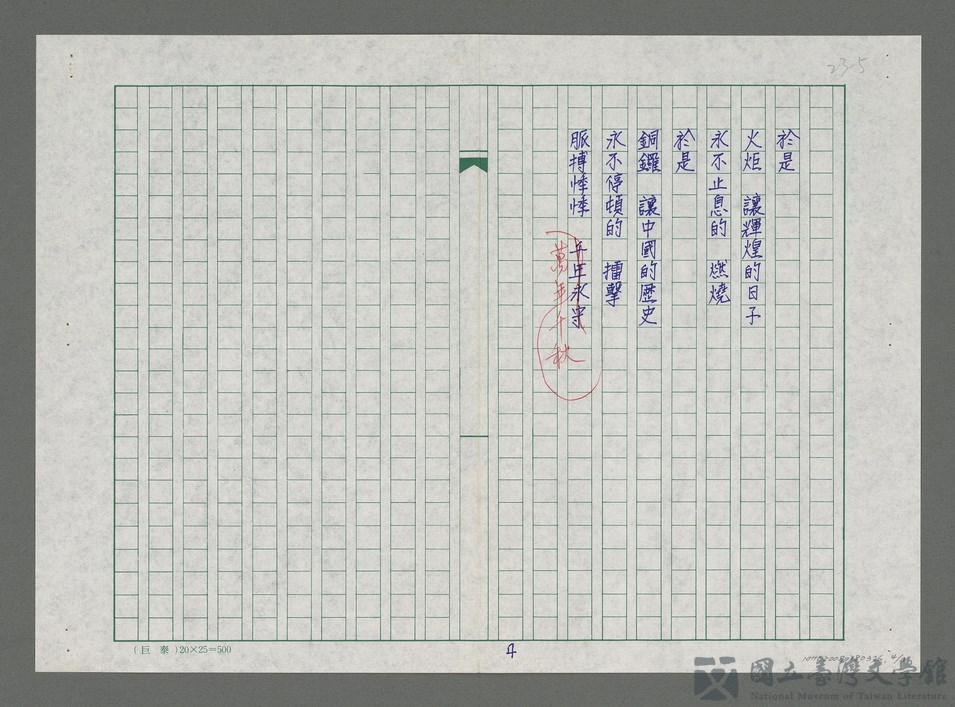 235
於是
火炬　讓輝煌的日子
永不止息的　燃燒
於是
銅鑼　讓中國的歷史
永不停頓的　擂擊
脈搏悸悸
萬年千秋
4
（巨泰）20×25=500
國立臺灣文學館
National Museum of Taiwan Literature